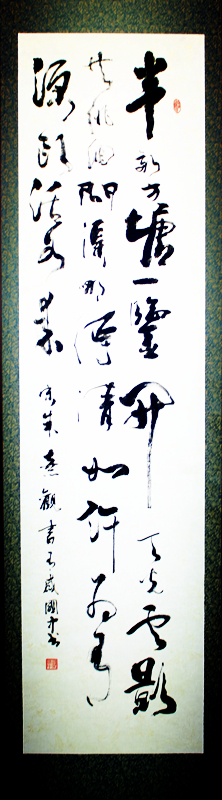 半畝方塘一鑒開天光雲影
共徘徊問渠那得清如許為有
源頭活水来宋朱熹觀書有感國平书